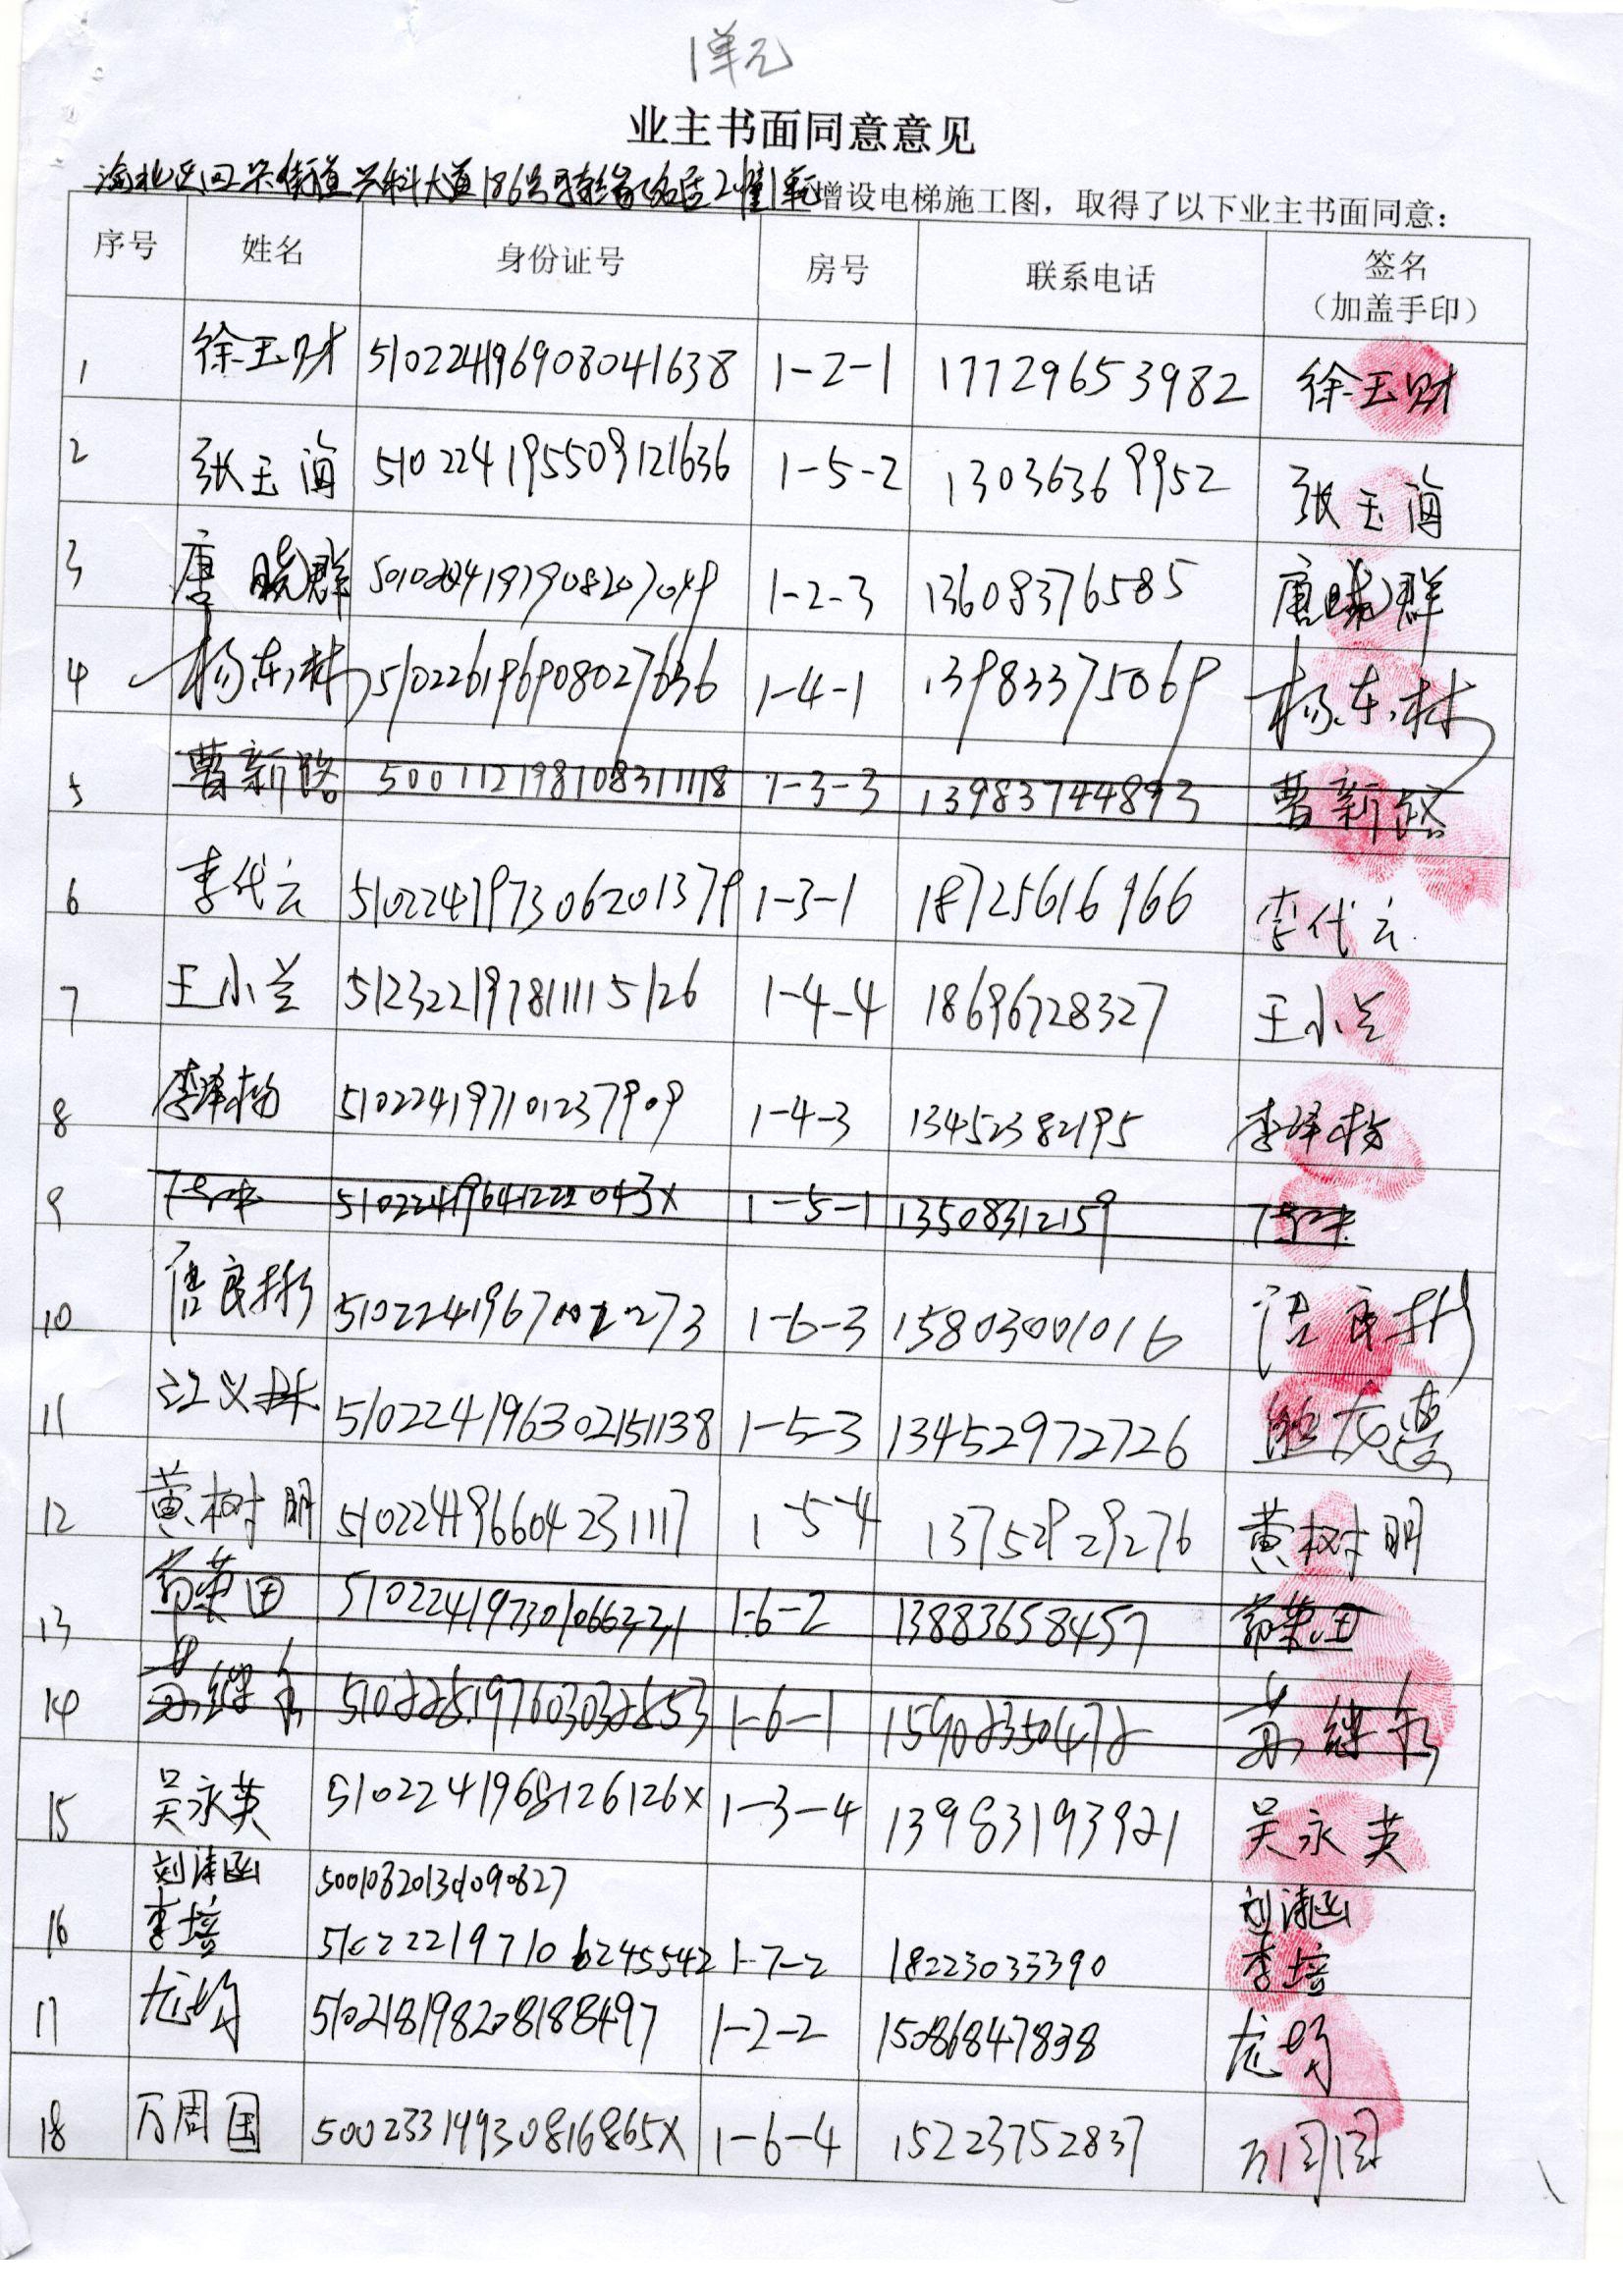 1单元
业主书面同意意见
增设电梯施工图，取得了以下业主书面同意：
序号 姓名 身份证号 房号 联系电话 签名（加盖手印）
1 徐玉财 510224196908041638 1-2-1 17729653982 徐玉财
2 张玉 510224195509121636 1-5-2 13036369952 张玉
3 唐晓群 1-2-3 13608376585 唐晓群
4 杨东林 510226196908027636 1-4-1 13983375069 杨东林
5 曹新 500112198108311118 1-3-3 13983744893 曹新
6 李代云 510224197306201379 1-3-1 18725616966 李代云
7 王小兰 512322197811115126 1-4-4 18696728327 王小兰
8 李泽 510224197101237909 1-4-3 13452382195 李泽
9 51022419641222043X 1-5-1 13508312159
10 良彬 1-6-3 15803001016 良彬
11 江义 510224196302151138 1-5-3 13452972726
12 黄树明 510224196604231117 1-5-4 13752929276 黄树明
13 荣田 1-6-2 13883658457 荣田
14 继 510228197603032853 1-6-1 15902350472 继
15 吴永英 5102241968126126X 1-3-4 13983193921 吴永英
16 刘 刘
李培 510222197106245542 1-7-2 18223033390 李培
17 龙 510218198208188497 1-2-2 15086847838 龙
18 万周国 50023319930816865X 1-6-4 15223752837 万周国